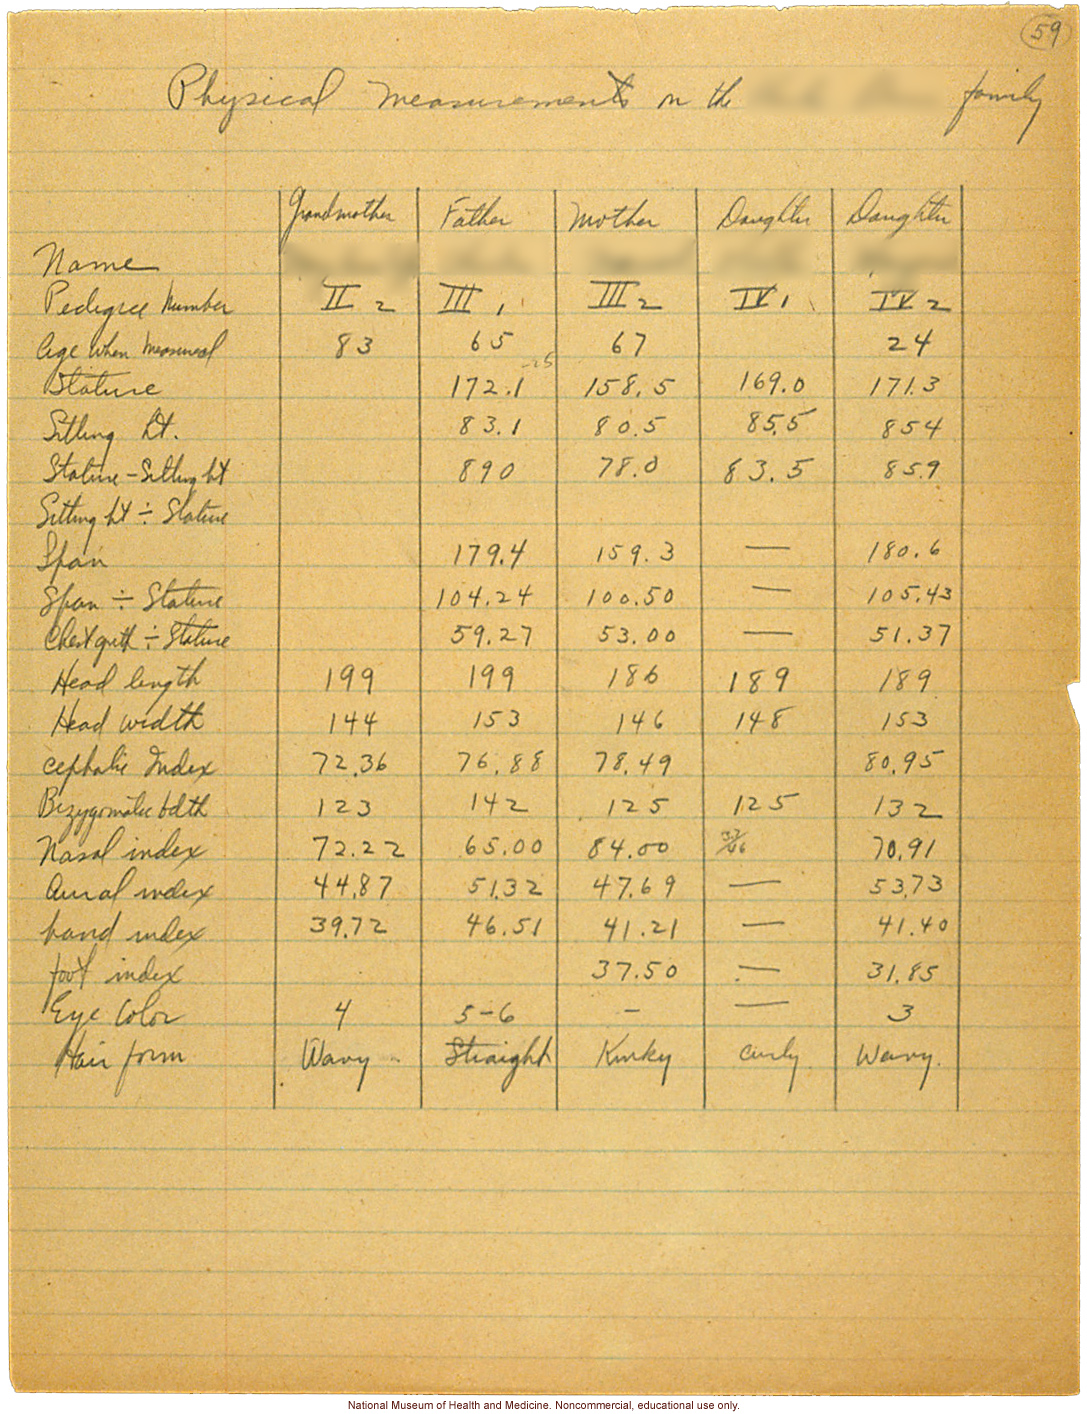 59
Physical measurements on the family
Grandmother Father Mother Daughter Daughter
Name
Pedigree Number II 2 III 1 III 2 IV 1 IV 2
Age when measured 83 65 67 24
Stature 172.1 158.5 169.0 171.3
Sitting ht. 83.1 80.5 85.5 854
Stature - Sitting ht 890 78.0 83.5 85.9
Sitting ht ÷ Stature
Span 179.4 159.3 — 180.6
Span ÷ Stature 104.24 100.50 — 105.43
Chest girth ÷ Stature 59.27 53.00 — 51.37
Head length 199 199 186 189 189
Head width 144 153 146 148 153
cephalic Index 72.36 76.88 78.49 80.95
Bizygomatic bdth 123 142 125 125 132
Nasal index 72.22 65.00 84.00 70.91
Aural index 44.87 51.32 47.69 — 53.73
hand index 39.72 46.51 41.21 — 41.40
foot index 37.50 — 31.85
Eye Color 4 5-6 - — 3
Hair form Wavy Straight Kinky curly Wavy.
National Museum of Health and Medicine. Noncommercial, educational use only.